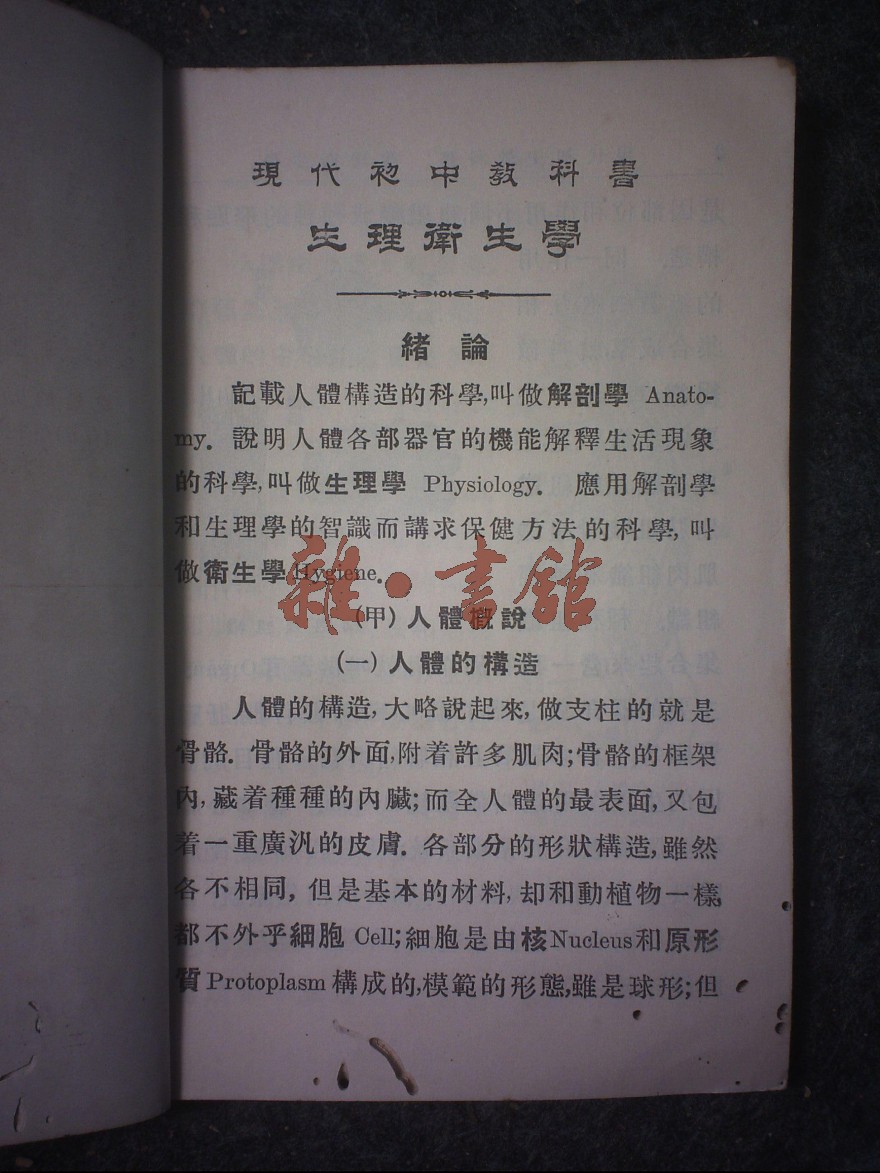 現代初中教科書
生理衛生學
緒論
記載人體構造的科學,叫做解剖學 Anato-
my. 說明人體各部器官的機能解釋生活現象
的科學,叫做生理學 Physiology. 應用解剖學
和生理學的智識而講求保健方法的科學,叫
做衛生學 Hygiene.
雜·書館
(甲) 人體概說
(一) 人體的構造
人體的構造,大咯說起來,做支柱的就是
骨骼. 骨骼的外面,附着許多肌肉;骨骼的框架
內,藏着種種的內臟;而全人體的最表面,又包
着一重廣汎的皮膚. 各部分的形狀構造,雖然
各不相同,但是基本的材料,却和動植物一樣,
都不外乎細胞 Cell;細胞是由核 Nucleus 和原形
質 Protoplasm 構成的,模範的形態,雖是球形;但